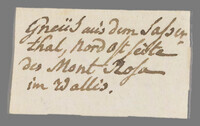 Gneüs aus dem Sasser
thal, Nord ost seite
des Mont Rosa
im Wallis.